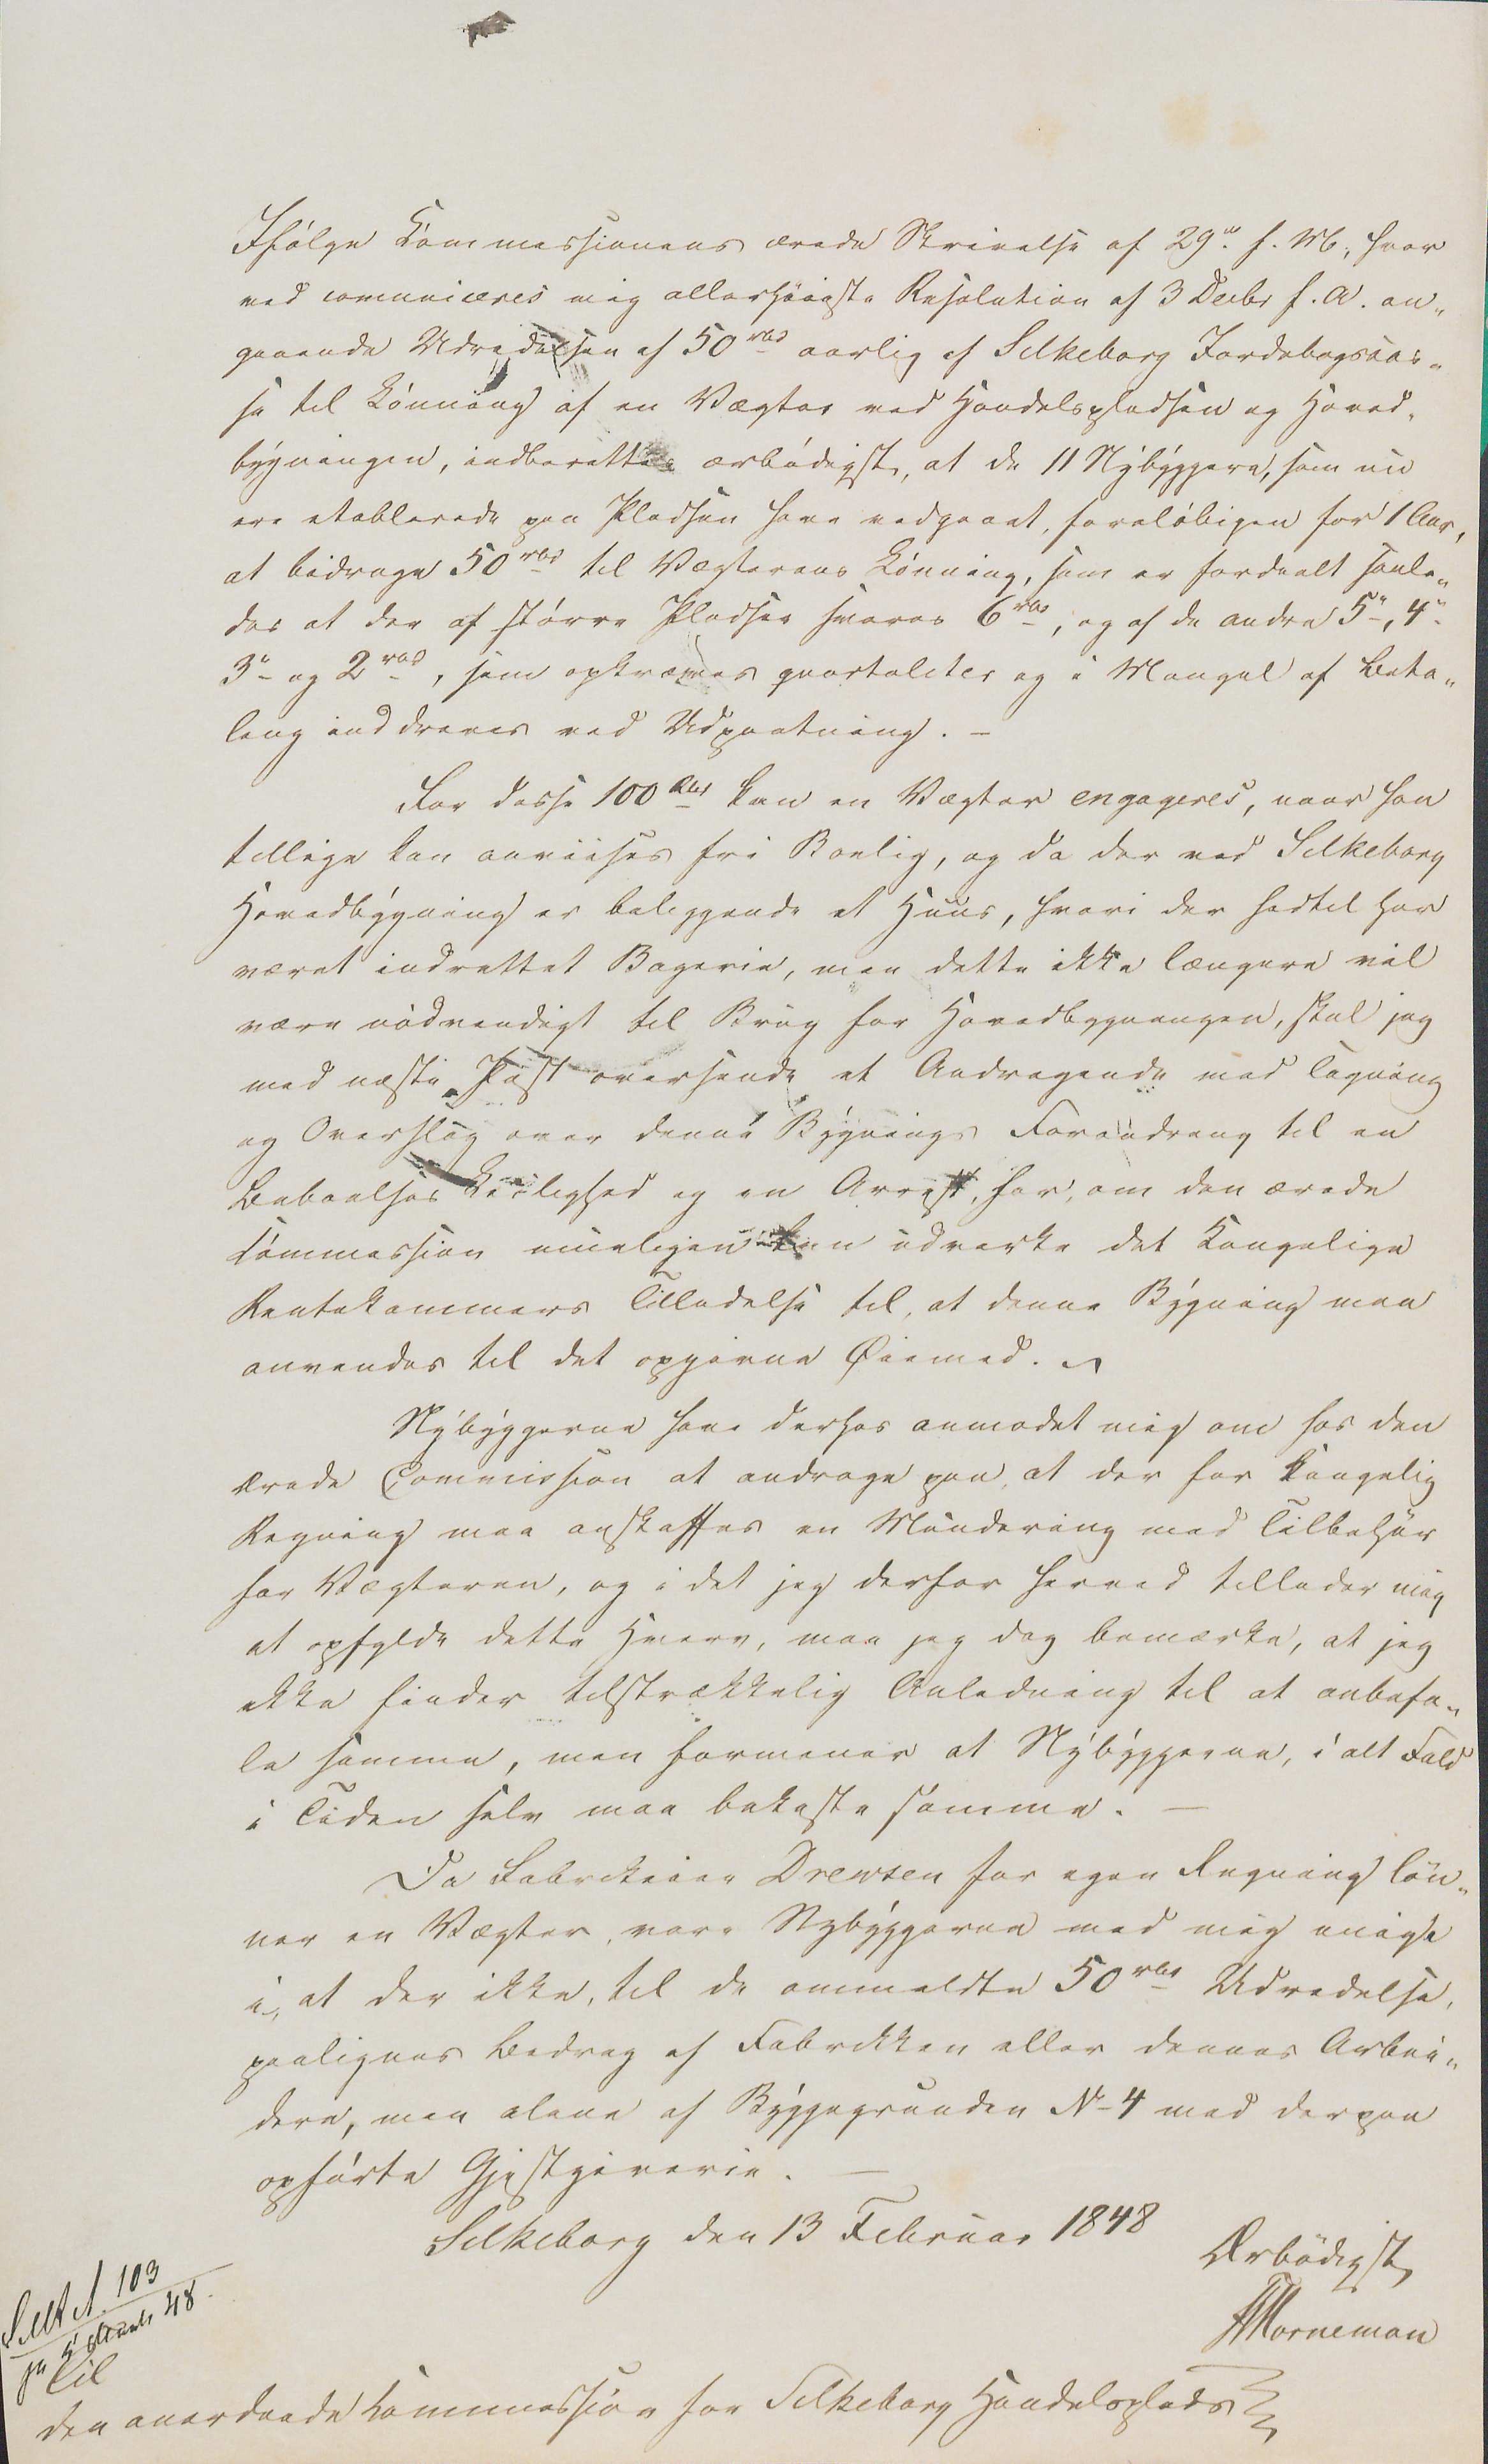 Ifølge Kommissionens ærede Skrivelse af 29de f. M., hvor
ved communiceres mig allerhöieste Resolution af 3 Decbr f. A. an-
gaaende Udredelsen af 50 rbd aarlig af Silkeborg Jordebogskas-
se til Lönning af en Vægter ved Handelspladsen og Hoved-
bygningen, indberettes ærbödigst, at de 11 Nÿbÿggere, som nu
ere etablerede paa Pladsen have vedgaaet, foreløbigen for 1 Aar,
at bidrage 50 rbd til Vægterens Lönning, som er fordeelt saale-
des at der af större Pladser svares 6 rbd, og af de andre 5", 4"
3" og 2 rbd, som opkræves qvartaliter og i Mangel af Beta-
ling inddrives ved Udpantning. —
For disse 100 Rbd kan en Vægter engageres, naar han
tillige kan anviises fri Boelig, og da der ved Silkeborg
Hovedbÿgning er beliggende et Huus, hvori der hidtil har
været indrettet Bagerie, men dette ikke længere vil
være nödvendigt til Brug for Hovedbygningen, skal jeg
med næste Post oversende et Andragende med Tegning
og Overslag over denne Bÿgnings Forandring til en
Beboelses Leilighed og en Arrest, for, om den ærede
Commission mueligen kan udvirke det Kongelige
Rentekammers Tilladelse til, at denne Bÿgning maa
anvendes til det opgivne Øiemed.
Nÿbÿggerne have derhos anmodet mig om hos den
ærede Commission at andrage paa, at der for kongelig
Regning maa anskaffes en Mundering med Tilbehör
for Vægteren, og i det jeg derfor herved tillader mig
at opfylde dette Hverv, maa jeg dog bemærke, at jeg
ikke finder tilstrækkelig Anledning til at anbefa-
le samme, men formener at Nÿbÿggerne, i alt Fald
i Tiden selv maa bekoste samme. —
Da Fabrikeier Drewsen for egen Regning lön-
ner en Vægter, vare Nybÿggerne med mig enige
i, at der ikke, til de ommeldte 50 rbd Udredelse,
paalignes Bidrag af Fabrikken eller dennes Arbei-
dere, men alene af Bÿggegrunden No 4 med derpaa
opförte Gjestgiverie. —
Silkeborg den 13 Februar 1848
Ærbödigst
Horneman
103
48
Til
den anordnede Kommission for Silkeborg Handelsplads